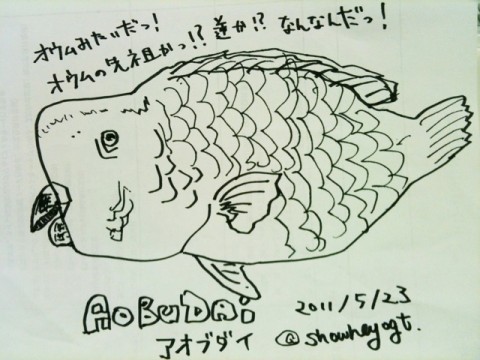 オウムみたいだっ!
オウムの先祖かっ!? 逆か!? なんなんだっ!
AoBuDai
アオブダイ
2011/5/23
@showheyogt.